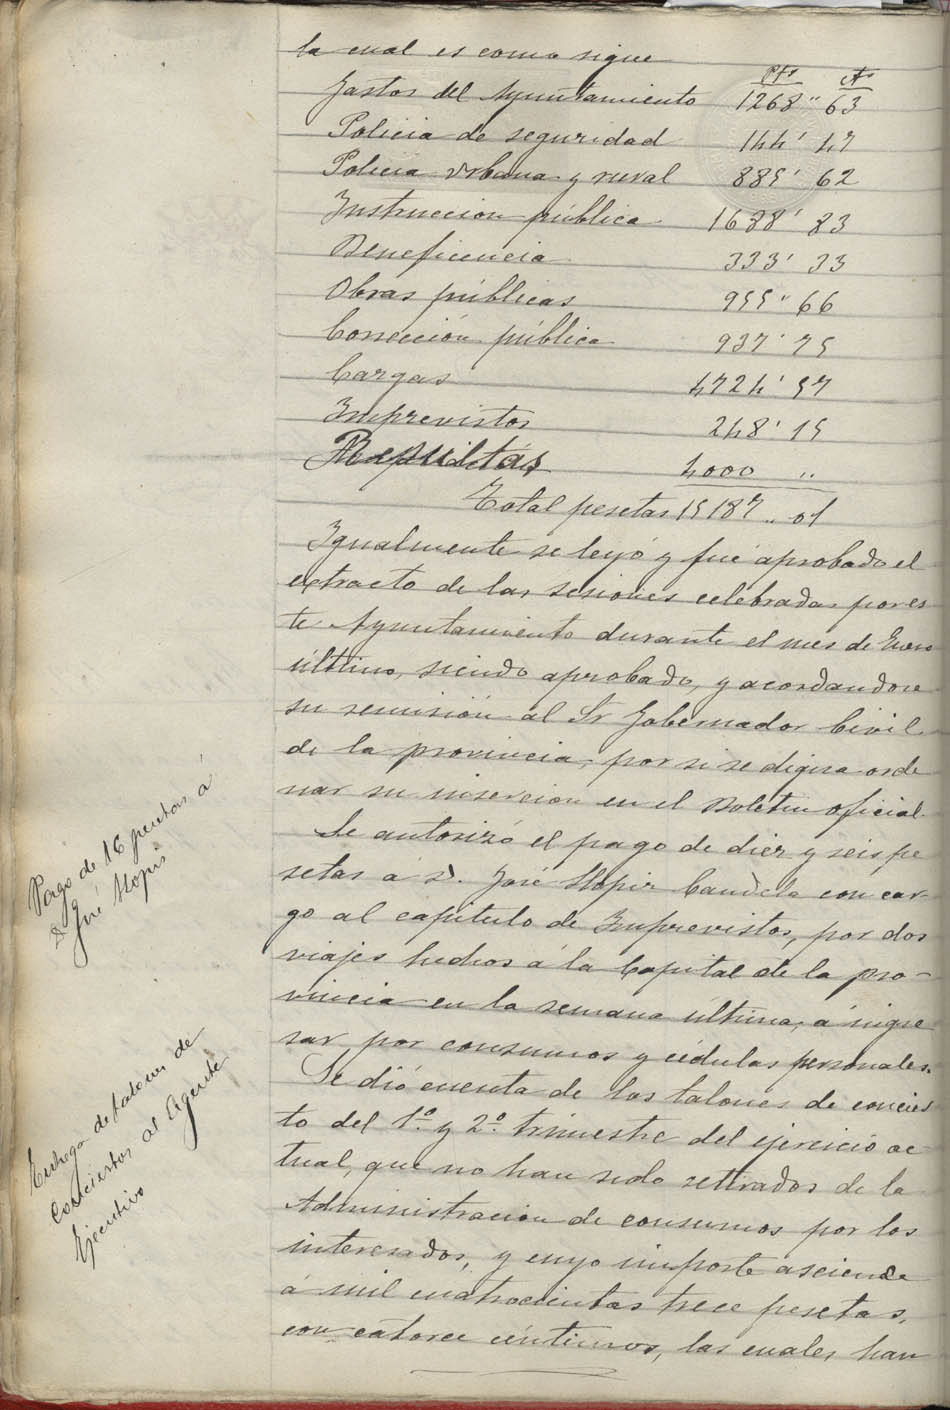 la cual es como sigue
Pts Cts
Gastos del Ayuntamiento 1268 " 63
Policia de seguridad 144 ' 47
Policia Urbana y rural 885 ' 62
Instruccion pública 1688 ' 83
Beneficencia 333 ' 33
Obras públicas 955 " 66
Corrección pública 937 ' 75
Cargas 4724 ' 57
Imprevistos 248 ' 15
Resultas 4000 ,,
Total pesetas 15187 ,, 01
Igualmente se leyó y fué aprobado el
extracto de las sesiones celebradas por es
te Ayuntamiento durante el mes de Enero
último, siendo aprobado, y acordandose
su remisión al Sr Gobernador Civil
de la provincia, por si se digna orde
nar su insercion en el Boletin oficial.
Se autorizó el pago de diez y seis pe
setas á D. José Llopis Candela con car-
go al capítulo de Imprevistos, por dos
viajes hechos á la Capital de la pro-
vincia en la semana última, á ingre
sar por consumos y cédulas personales.
Se dió cuenta de los talones de concier
to del 1º y 2º trimestre del ejercicio ac
tual, que no han sido retirados de la
Administracion de consumos por los
interesados, y cuyo importe asciende
á mil cuatrocientas trece pesetas,
con catorce céntimos, las cuales han
Pago de 16 pesetas á
D José Llopis
Entrega de talones de
Conciertos al Agente
Ejecutivo